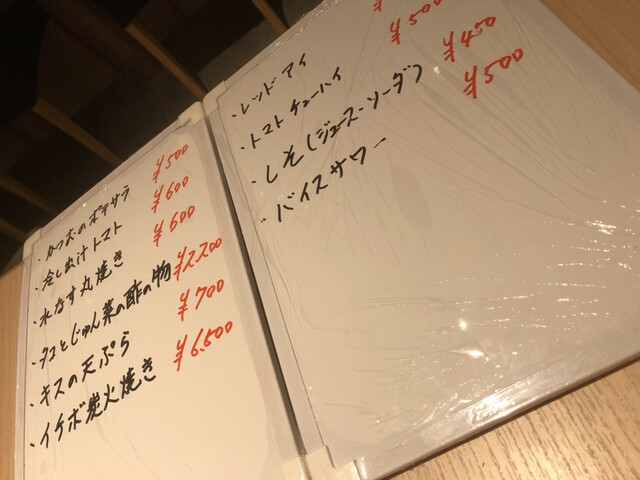 ・かつおのポテサラ ¥500
・冷し出汁トマト ¥600
・水なす丸焼き ¥600
・タコとじゅん菜の酢の物 ¥2.200
・キスの天ぷら ¥700
・イチボ炭火焼き ¥6.500
・レッドアイ
・トマトチューハイ ¥500
・しそ(ジュース・ソーダ) ¥400
・バイスサワー ¥500